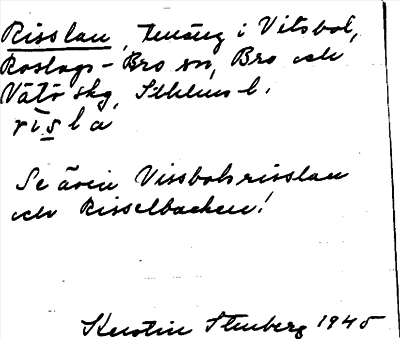 Risslan, tenäng i Vitsbol,
Roslags-Bro sn, Bro och
Vätö skg, Sthlms l.
rīsla
Se även Vissbohsrisslan
och Risselbacken!
Kerstin Stenberg 1945